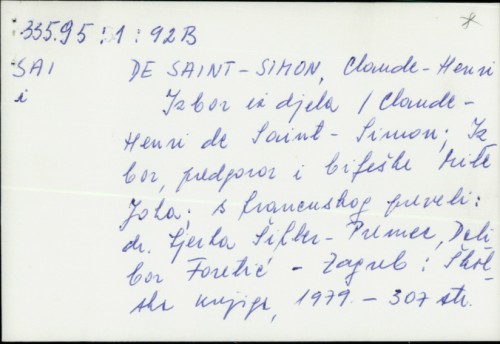 335.95 : 1 : 92B
SAI
i
DE SAINT-SIMON, Claude-Henri
Izbor iz djela / Claude-
Henri de Saint-Simon; Iz
bor, predgovor i bilješke Mile
Joka; s francuskog preveli:
dr. Ljerka Šifler-Premec, Dali
bor Foretić - Zagreb : Škol
ska knjiga, 1979. - 307 str.